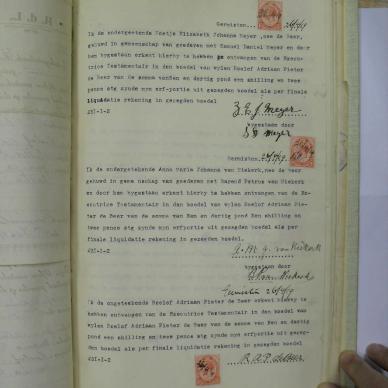 Germiston 26/9/19
Ik de ondergeteekende Zoetje Elizabeth Johanna Meyer ,nee de Beer,
gehuwd in gemeenschap van goederen met Samuel Daniel Meyer en door
hem bygestaan erkent hierby te hebben ontvangen van de Execu-
trice Testamentair in den boedel van wylen Roelof Adriaan Pieter
de Beer de somme van Een en dertig pond een shilling en twee
pence stg zynde myn erf-portie uit gezegden boedel als per finale
liquidatie rekening in gezegden boedel
£31-1-2
Z. E. J. Meyer
bygestaan door
S. D. Meyer
Germiston
Ik de ondergeteekende Anna Maria Johanna van Niekerk,nee de Beer,
gehuwd in gemeenschap van goederen met Barend Petrus van Niekerk
en door hem bygestaan erkent hierby te hebben ontvangen van de Ex-
ecutrice Testamentair in den boedel van wylen Roelof Adriaan Pie-
ter de Beer de somme van Een en dertig pond Een shilling en twee
pence stg zynde myn erf-portie uit gezegden boedel als per
finale liquidatie rekening in gezegden boedel
£31-1-2
A. M. J. van Niekerk
bygestaan door
van Niekerk
Germiston 26/9/19
Ik de ongeteekende Roelof Adriaan Pieter de Beer erkent hierby te
hebben ontvangen van de Executrice Testamentair in den boedel van
wylen Roelof Adriaan Pieter de Beer de somme van Een en dertig
pond een shilling en twee pence stg zynde myn erf-portie uit gezeg-
den boedel als per finale liquidatie rekening in gezegden boedel
£31-1-2
R. A. P. de Beer